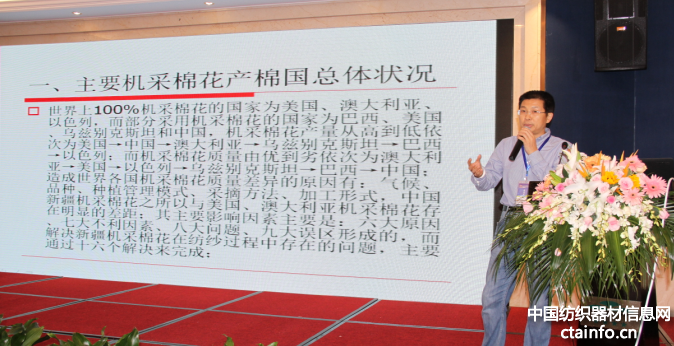 一、主要机采棉花产棉国总体状况
世界上100%机采棉花的国家为美国、澳大利亚、
以色列，而部分采用机采棉花的国家为巴西、美国
、乌兹别克斯坦和中国，机采棉花产量从高到低依
次为美国→中国→澳大利亚→乌兹别克斯坦→巴西
→以色列；而机采棉花质量由优到劣依次为澳大利
亚→美国→以色列→乌兹别克斯坦→巴西→中国；
造成世界各国机采棉质量差异的原因有：气候、
品种、种植管理模式、采摘方法、加工形式，中国
新疆机采棉花之所以与美国、澳大利亚机采棉花存
在明显的差距；其主要影响因素主要是：六大原因
、七大不利因素、八大问题、九大误区形成的，而
解决新疆机采棉花在纺纱过程中存在的问题，主要
通过十六个解决来完成：
中国纺织器材信息网
ctainfo.cn